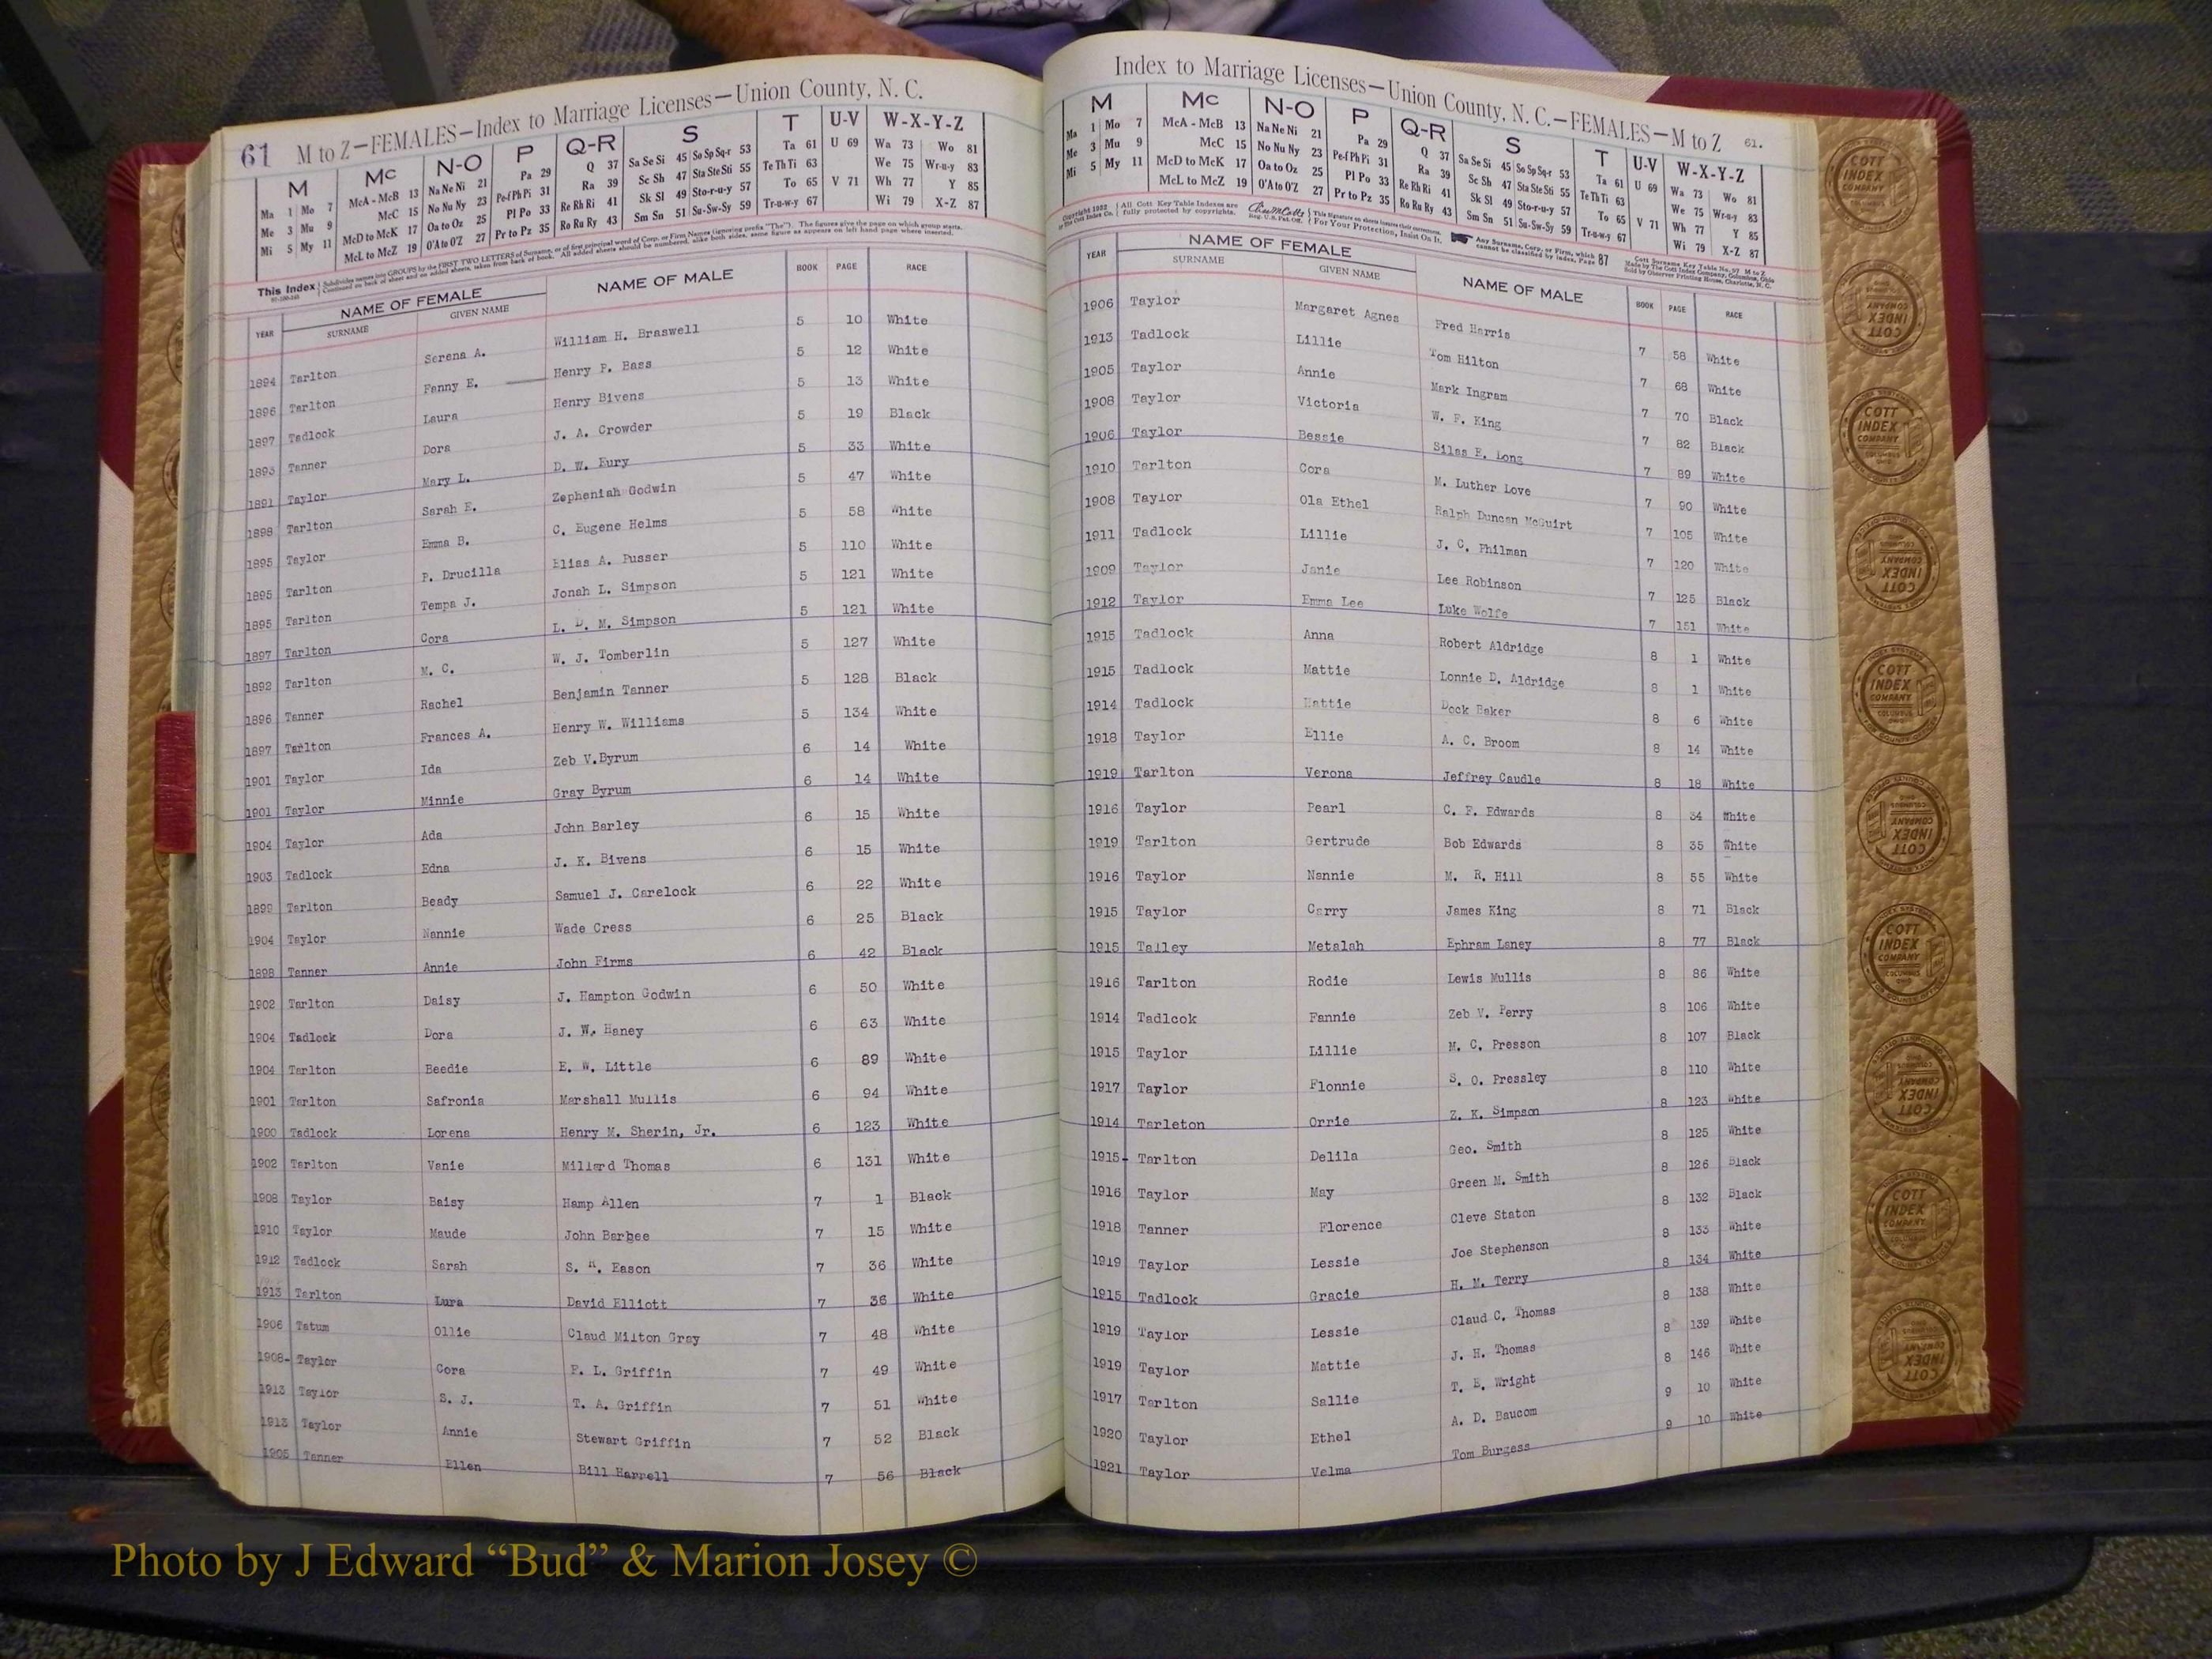 61 M to Z—FEMALES—Index to Marriage Licenses—Union County, N. C.
M Mc N-O P Q-R S T U-V W-X-Y-Z
Ma 1 Mo 7 McA - McB 13 Na Ne Ni 21 Pa 29 Q 37 Sa Se Si 45 So Sp Sq-r 53 Ta 61 U 69 Wa 73 Wo 81
Me 3 Mu 9 McC 15 No Nu Ny 23 Pe-f Ph Pi 31 Ra 39 Sc Sh 47 Sta Ste Sti 55 Te Th Ti 63 We 75 Wr-u-y 83
Mi 5 My 11 McD to McK 17 Oa to Oz 25 Pl Po 33 Re Rh Ri 41 Sk Sl 49 Sto-r-u-y 57 To 65 V 71 Wh 77 Y 85
McL to McZ 19 O'A to O'Z 27 Pr to Pz 35 Ro Ru Ry 43 Sm Sn 51 Su-Sw-Sy 59 Tr-u-w-y 67 Wi 79 X-Z 87
This Index
NAME OF FEMALE
YEAR SURNAME GIVEN NAME NAME OF MALE BOOK PAGE RACE
1894 Tarlton Serena A. William H. Braswell 5 10 White
1896 Tarlton Fanny E. Henry P. Bass 5 12 White
1897 Tadlock Laura Henry Bivens 5 13 White
1893 Tanner Dora J. A. Crowder 5 19 Black
1891 Taylor Mary L. D. W. Eury 5 33 White
1898 Tarlton Sarah E. Zepheniah Godwin 5 47 White
1895 Taylor Emma B. C. Eugene Helms 5 58 White
1895 Tarlton P. Drucilla Elias A. Pusser 5 110 White
1895 Tarlton Tempa J. Jonah L. Simpson 5 121 White
1897 Tarlton Cora L. D. M. Simpson 5 121 White
1892 Tarlton M. C. W. J. Tomberlin 5 127 White
1896 Tanner Rachel Benjamin Tanner 5 128 Black
1897 Tarlton Frances A. Henry W. Williams 5 134 White
1901 Taylor Ida Zeb V.Byrum 6 14 White
1901 Taylor Minnie Gray Byrum 6 14 White
1904 Taylor Ada John Barley 6 15 White
1903 Tadlock Edna J. K. Bivens 6 15 White
1899 Tarlton Beady Samuel J. Carelock 6 22 White
1904 Taylor Nannie Wade Cress 6 25 Black
1898 Tanner Annie John Firms 6 42 Black
1902 Tarlton Daisy J. Hampton Godwin 6 50 White
1904 Tadlock Dora J. W. Haney 6 63 White
1904 Tarlton Beedie E. W. Little 6 89 White
1901 Tarlton Safronia Marshall Mullis 6 94 White
1900 Tadlock Lorena Henry M. Sherin, Jr. 6 123 White
1902 Tarlton Vanie Millard Thomas 6 131 White
1908 Taylor Baisy Hamp Allen 7 1 Black
1910 Taylor Maude John Barbee 7 15 White
1912 Tadlock Sarah S. H. Eason 7 36 White
1913 Tarlton Lura David Elliott 7 36 White
1906 Tatum Ollie Claud Milton Gray 7 48 White
1908- Taylor Cora P. L. Griffin 7 49 White
1913 Taylor S. J. T. A. Griffin 7 51 White
1913 Taylor Annie Stewart Griffin 7 52 Black
1905 Tanner Ellen Bill Harrell 7 56 Black
Index to Marriage Licenses—Union County, N. C.—FEMALES—M to Z 61.
M Mc N-O P Q-R S T U-V W-X-Y-Z
Ma 1 Mo 7 McA - McB 13 Na Ne Ni 21 Pa 29 Q 37 Sa Se Si 45 So Sp Sq-r 53 Ta 61 U 69 Wa 73 Wo 81
Me 3 Mu 9 McC 15 No Nu Ny 23 Pe-f Ph Pi 31 Ra 39 Sc Sh 47 Sta Ste Sti 55 Te Th Ti 63 We 75 Wr-u-y 83
Mi 5 My 11 McD to McK 17 Oa to Oz 25 Pl Po 33 Re Rh Ri 41 Sk Sl 49 Sto-r-u-y 57 To 65 V 71 Wh 77 Y 85
McL to McZ 19 O'A to O'Z 27 Pr to Pz 35 Ro Ru Ry 43 Sm Sn 51 Su-Sw-Sy 59 Tr-u-w-y 67 Wi 79 X-Z 87
All Cott Key Table Indexes are fully protected by copyrights. For Your Protection, Insist On It. Any Surname, Corp. or Firm, which cannot be classified by Index, Page 87
NAME OF FEMALE
YEAR SURNAME GIVEN NAME NAME OF MALE BOOK PAGE RACE
1906 Taylor Margaret Agnes Fred Harris 7 58 White
1913 Tadlock Lillie Tom Hilton 7 68 White
1905 Taylor Annie Mark Ingram 7 70 Black
1908 Taylor Victoria W. F. King 7 82 Black
1906 Taylor Bessie Silas E. Long 7 89 White
1910 Tarlton Cora M. Luther Love 7 90 White
1908 Taylor Ola Ethel Ralph Duncan McGuirt 7 105 White
1911 Tadlock Lillie J. C. Philman 7 120 White
1909 Taylor Janie Lee Robinson 7 125 Black
1912 Taylor Emma Lee Luke Wolfe 7 151 White
1915 Tadlock Anna Robert Aldridge 8 1 White
1915 Tadlock Mattie Lonnie D. Aldridge 8 1 White
1914 Tadlock Hattie Dock Baker 8 6 White
1918 Taylor Ellie A. C. Broom 8 14 White
1919 Tarlton Verona Jeffrey Caudle 8 18 White
1916 Taylor Pearl C. F. Edwards 8 34 White
1919 Tarlton Gertrude Bob Edwards 8 35 White
1916 Taylor Nannie M. R. Hill 8 55 White
1915 Taylor Carry James King 8 71 Black
1915 Talley Metalah Ephram Laney 8 77 Black
1916 Tarlton Rodie Lewis Mullis 8 86 White
1914 Tadlcok Fannie Zeb V. Perry 8 106 White
1915 Taylor Lillie M. C. Presson 8 107 Black
1917 Taylor Flonnie S. O. Pressley 8 110 White
1914 Tarleton Orrie Z. K. Simpson 8 123 White
1915- Tarlton Delila Geo. Smith 8 125 White
1916 Taylor May Green M. Smith 8 126 Black
1918 Tanner Florence Cleve Staton 8 132 Black
1919 Taylor Lessie Joe Stephenson 8 133 White
1915 Tadlock Gracie H. M. Terry 8 134 White
1919 Taylor Lessie Claud C. Thomas 8 138 White
1919 Taylor Mattie J. H. Thomas 8 139 White
1917 Tarlton Sallie T. B. Wright 8 146 White
1920 Taylor Ethel A. D. Baucom 9 10 White
1921 Taylor Velma Tom Burgess 9 10 White
COTT INDEX COMPANY
Photo by J Edward “Bud” & Marion Josey ©